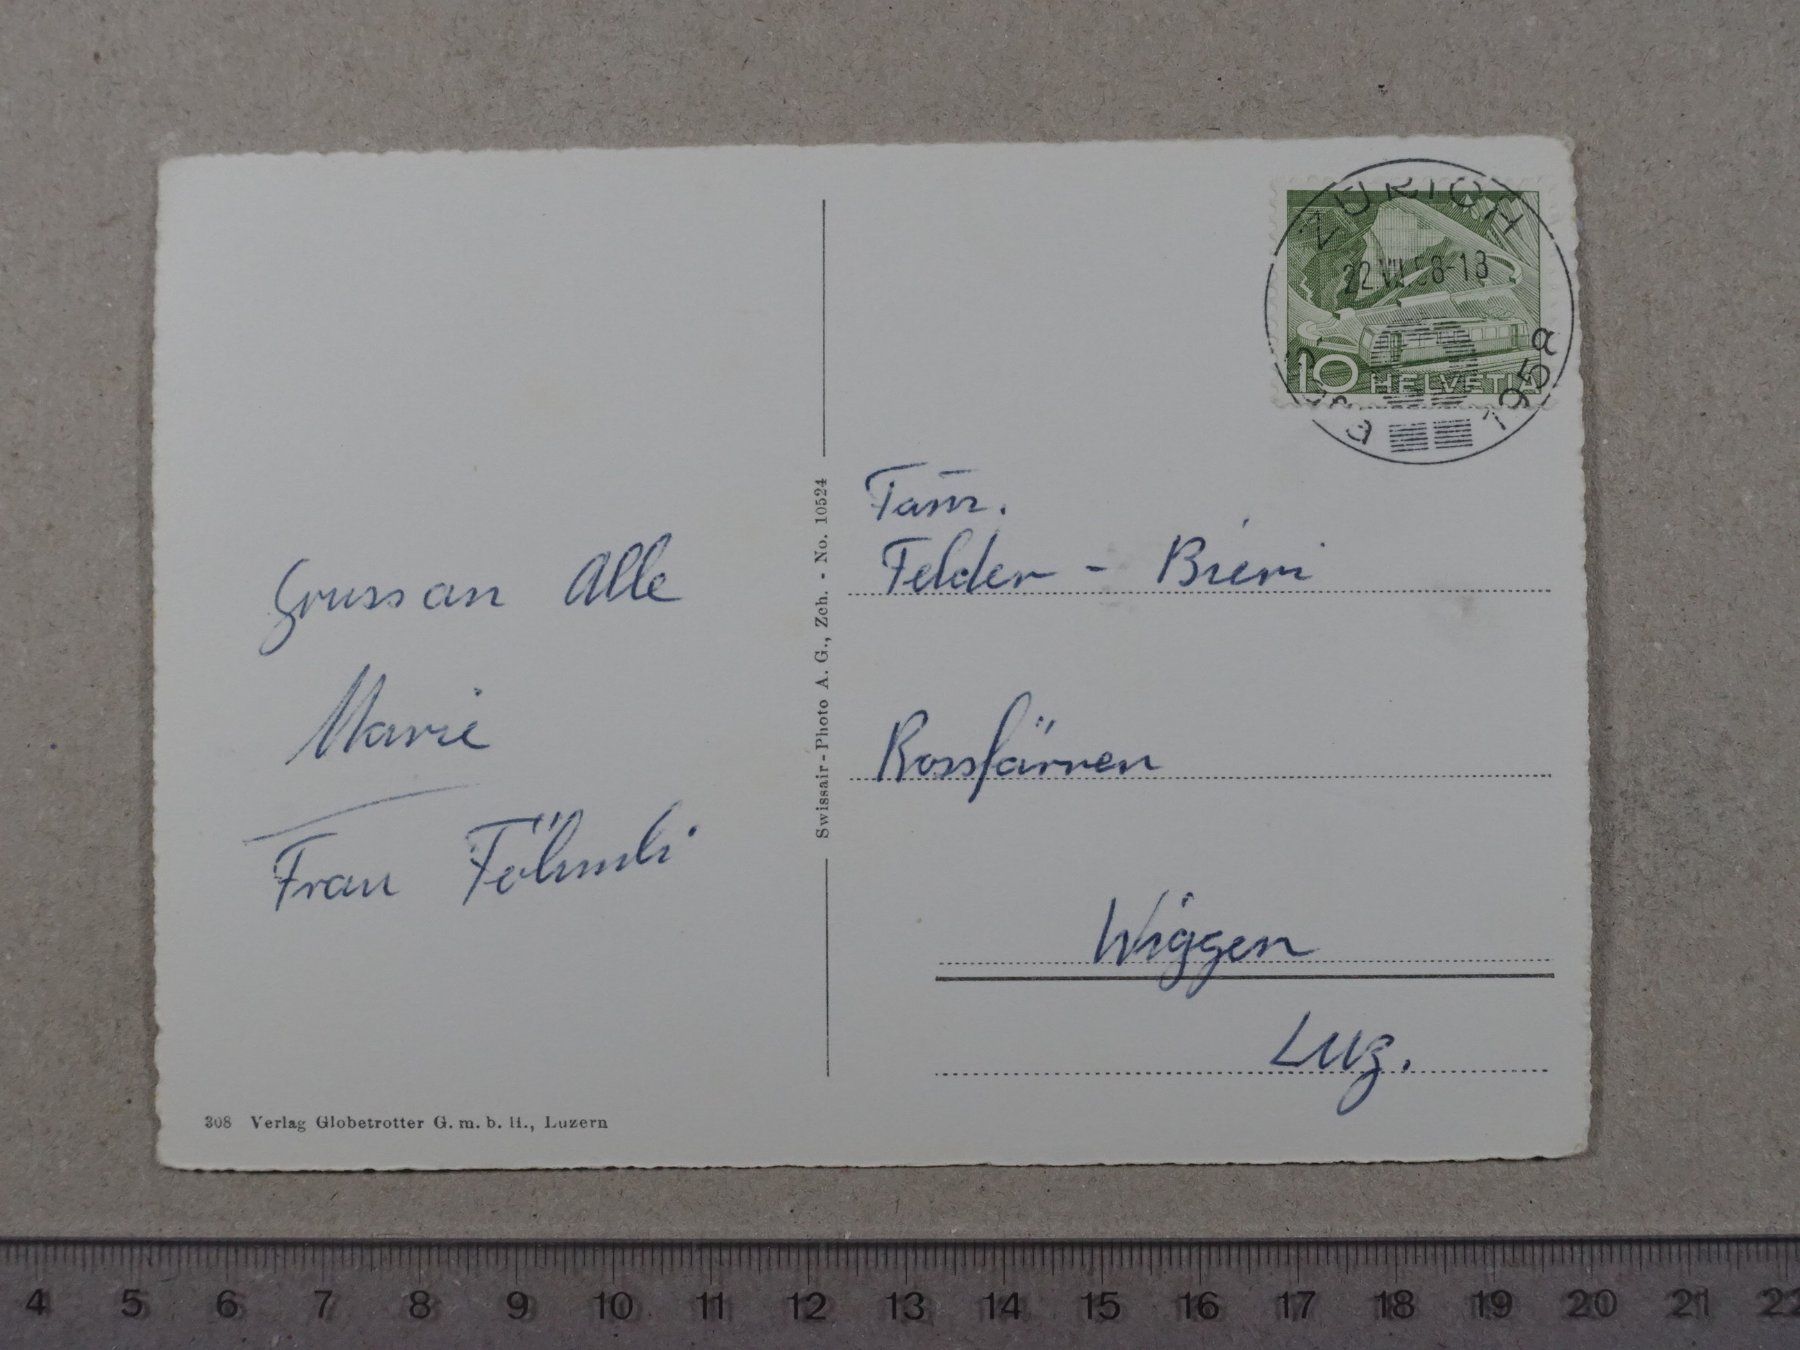 Gruss an Alle
Marie
Frau
308 Verlag Globetrotter G. m. b. H., Luzern
Swissair-Photo A. G., Zch. - No. 10524
ZÜRICH
22.VII.58-18
1958
10 HELVETIA
Fam.
Felder - Bieri
Rossfärren
Wiggen
Luz.
4 5 6 7 8 9 10 11 12 13 14 15 16 17 18 19 20 21 22